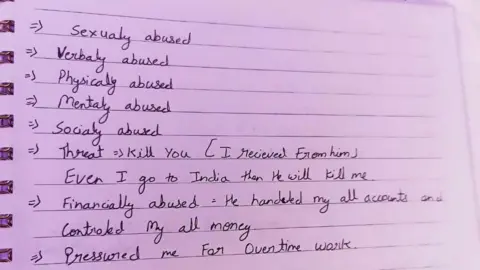 => Sexualy abused
=> Verbaly abused
=> Physicaly abused
=> Mentaly abused
=> Socialy abused
=> Threat => Kill You [ I recieved From him ]
Even I go to India then He will kill me
=> Financially abused = He handeled my all accounts and
Controled My all money.
=> Pressured me For Overtime work.